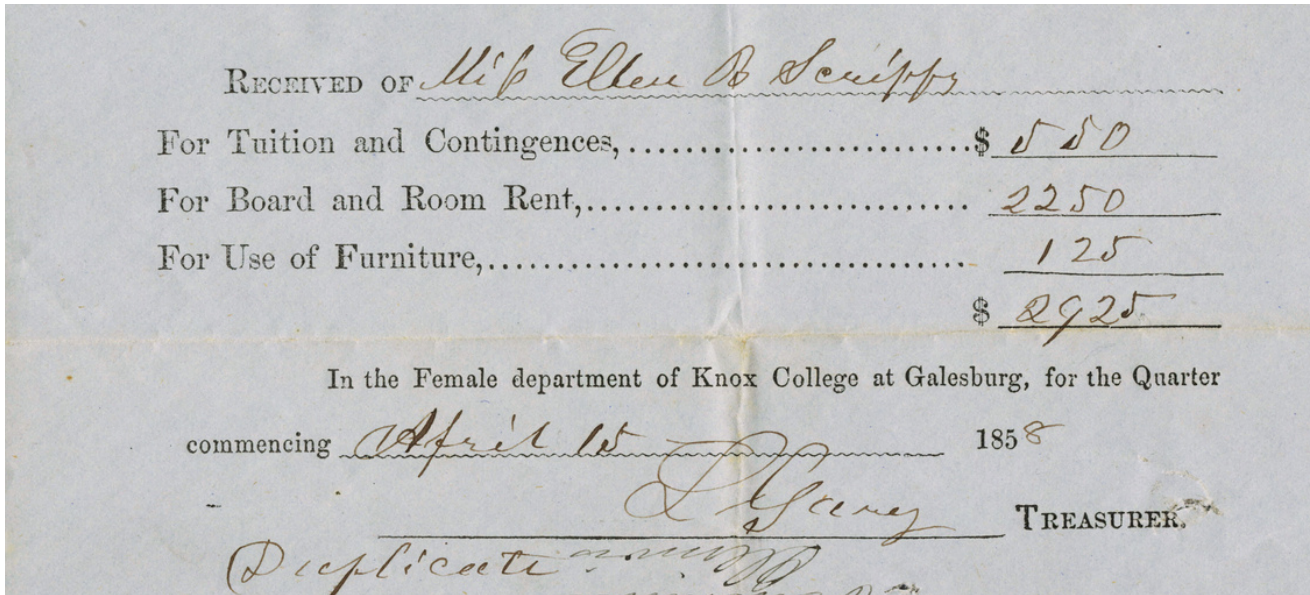 RECEIVED OF Miss Ellen B Scripps
For Tuition and Contingences,..........................$ 5 50
For Board and Room Rent,............................ 22 50
For Use of Furniture,................................... 1 25
$ 29 25
In the Female department of Knox College at Galesburg, for the Quarter
commencing April 15 1858
TREASURER.
Duplicate